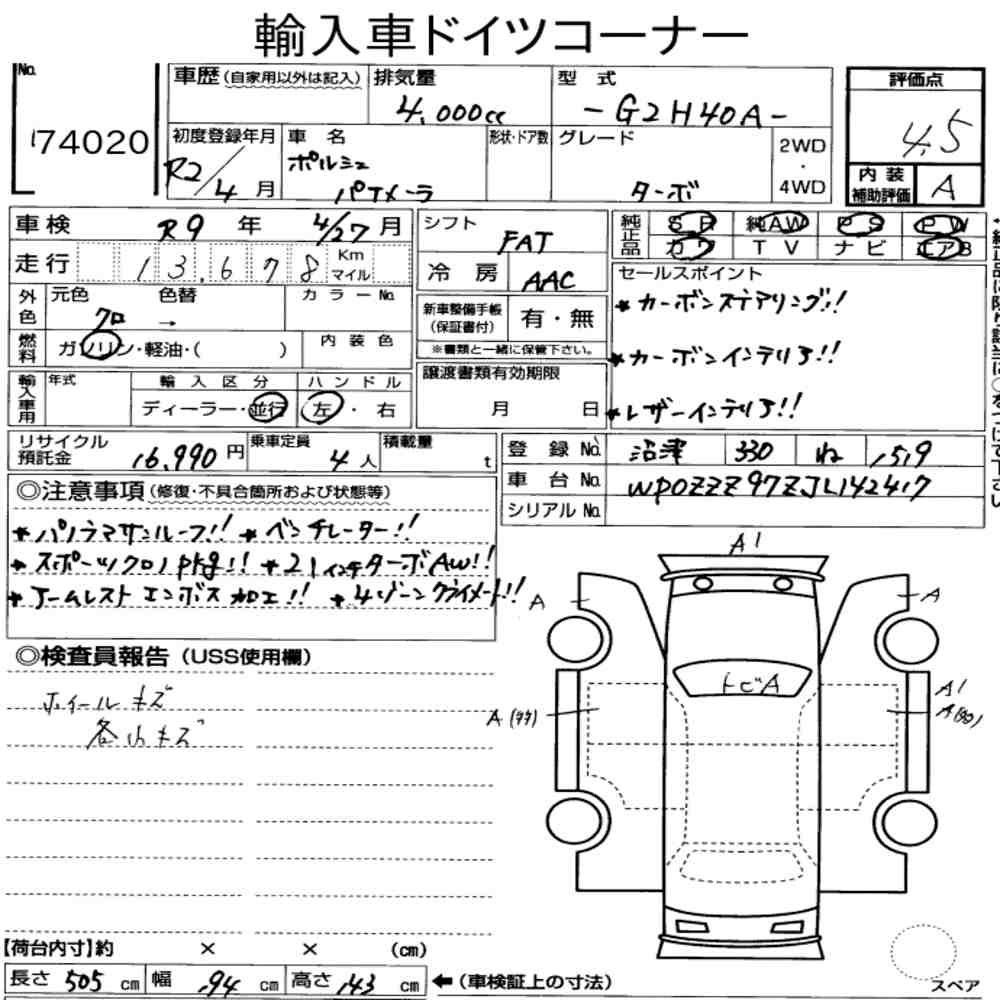 輸入車ドイツコーナー
No. 174020
車歴(自家用以外は記入) 排気量 4,000cc 型式 -G2H40A- 評価点 4.5
初度登録年月 R2/4月 車名 ポルシェ パナメーラ 形状・ドア数 グレード ターボ 2WD・4WD 内装補助評価 A
車検 R9年 4/27月 シフト FAT 純正品 SR 純AW PS PW
カワ TV ナビ エアB
走行 13,678 Km マイル 冷房 AAC セールスポイント
* カーボンステアリング!!
外色 元色 クロ 色替 → カラーNo. 新車整備手帳(保証書付) 有・無
※書類と一緒に保管下さい。
* カーボンインテリア!!
燃料 ガソリン・軽油・( ) 内装色
譲渡書類有効期限 月 日
* レザーインテリア!!
輸入車用 年式 輸入区分 ハンドル
ディーラー・並行 左・右
リサイクル預託金 16,990円 乗車定員 4人 積載量 t
登録No. 沼津 330 ね 1519
車台No. WP0ZZZ97ZJL142417
シリアルNo.
◎注意事項(修復・不具合箇所および状態等)
* パノラマサンルーフ!! * ベンチレーター!!
* スポーツクロノpkg!! * 21インチターボAW!!
* アームレストエンボス加工!! * 4ゾーンクライメート!!
◎検査員報告(USS使用欄)
ホイールキズ
各小キズ
A1
A A
トビA
A1
【荷台内寸】約 × × (cm)
長さ 505 cm 幅 194 cm 高さ 143 cm ←(車検証上の寸法)
スペア